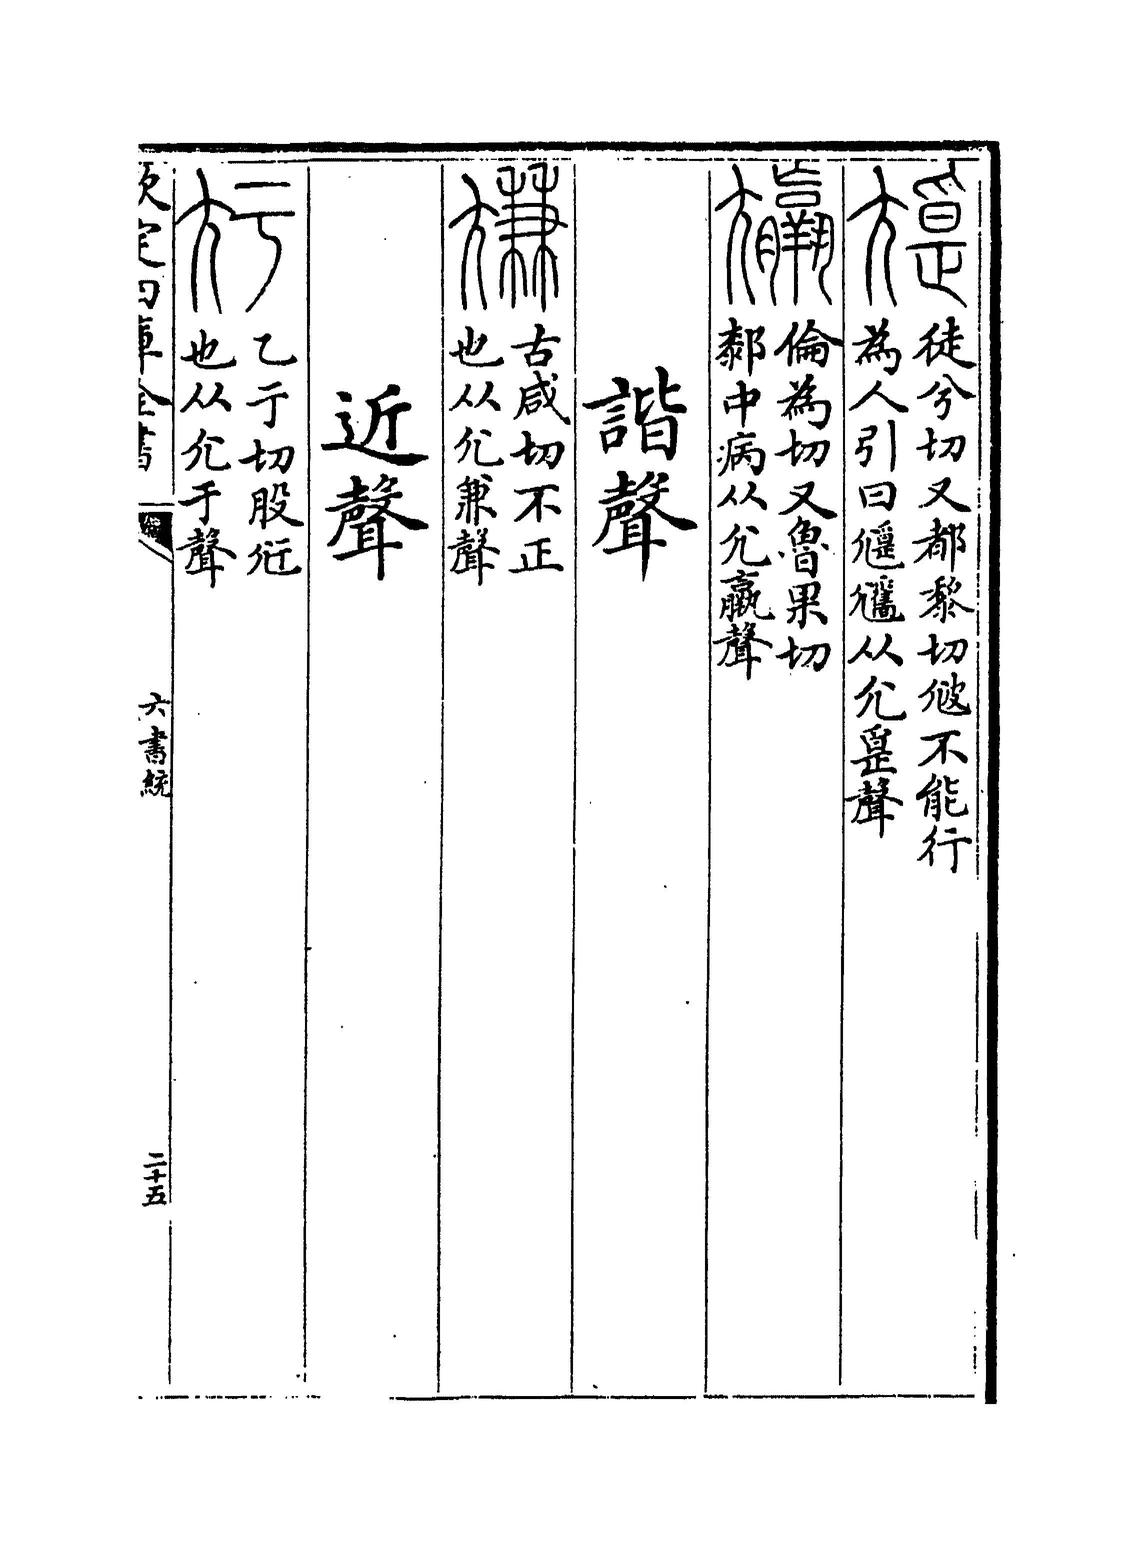 徒兮切又都黎切㞂不能行
為人引曰从尣聲
倫為切又魯果切
䣛中病从尣羸聲
諧聲
古咸切不正
也从尣兼聲
近聲
乙亐切股
也从尣于聲
欽定四庫全書
六書統
二十五